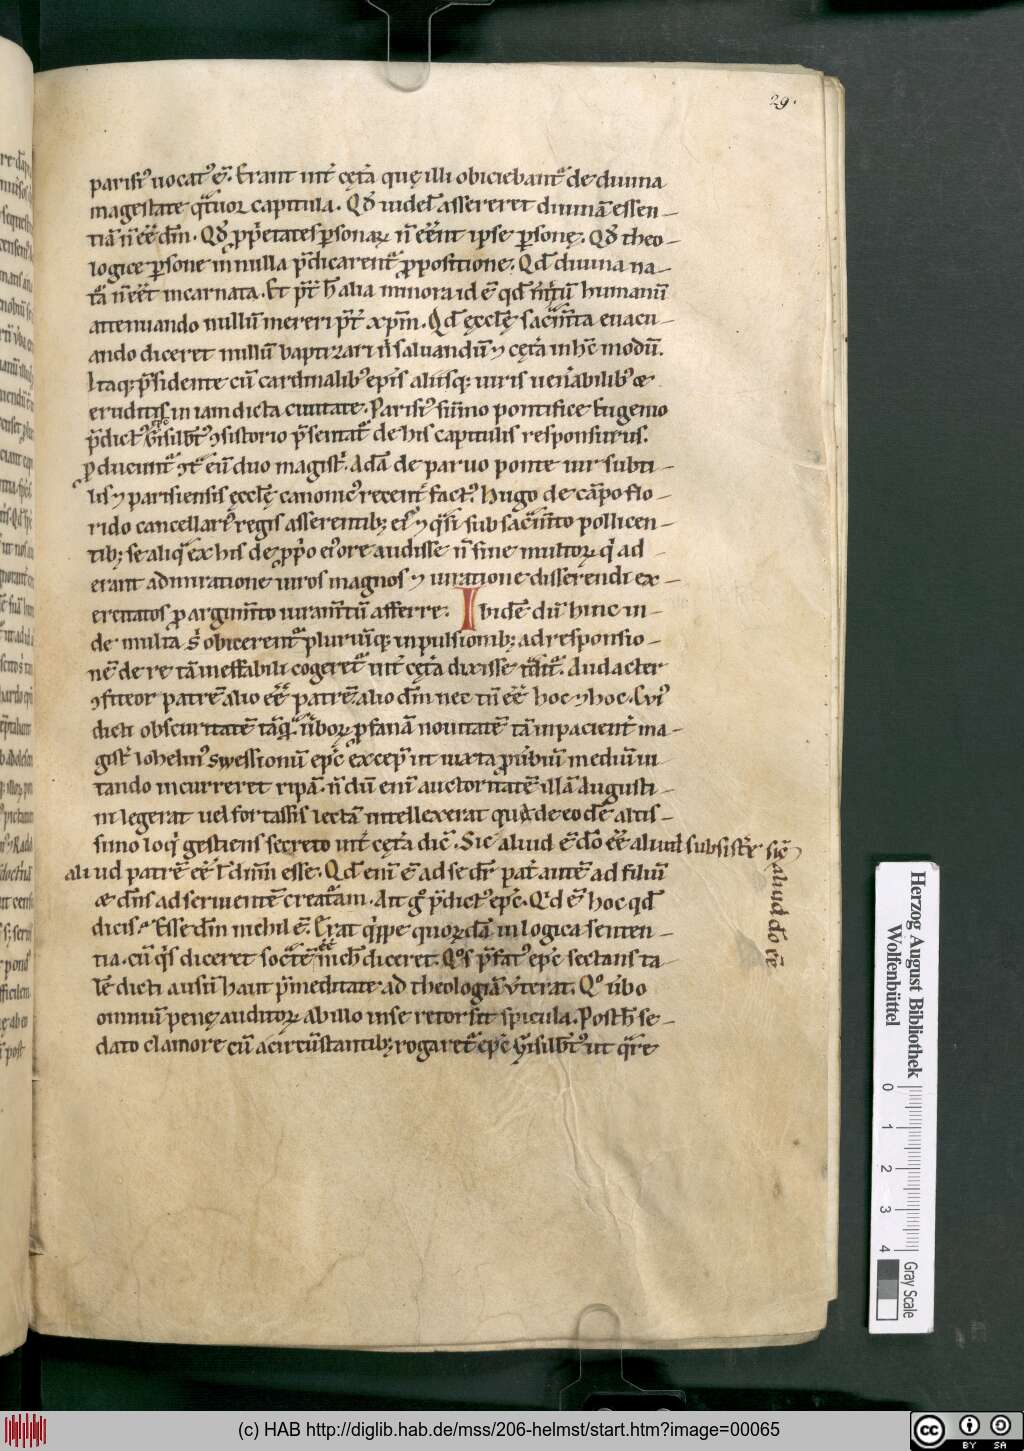 29.
parisiꝰ uocatꝰ ē. Erant int̄ cęt̄a quę illi obiciebant᷑ de diuina
magestate q̄tuor capitula. Qđ uidel; assereret diuinā essen-
tiā n̄ eē dm̄. Qđ ꝓp̄etates ꝑsonaꝝ n̄ eēnt ipse ꝑsonę. Qđ theo-
logice ꝑsone in nulla p̄dicarent᷑ ꝓpositione. Qđ diuina na-
t̄a n̄ eēt incarnata. Et p̄t̄ h̄ alia minora id ē qđ m̄itū humanū
attenuando nullū mereri p̄t̄ xp̄m. Qđ ęcclę̄ sac̄m̄ta euacu-
ando diceret nullū baptizari n̄ saluandū ⁊ cęt̄a in hē modū.
Itaq; p̄sidente cū cardinalibꝰ ep̄is aliisq; uiris uen̄abilibꝰ ⁊
eruditis in iam dicta ciuitate. Parisiꝰ sūmo pontifice Eugenio
p̄dictꝰ ep̄c Gisilb̄tꝰ ꝯsistorio p̄sentat᷑ de his capitulis responsurus.
ꝓducunt᷑ ꝯt̄ eū duo magist̄. Adā de paruo ponte uir subti-
lis ⁊ parisiensis ęcclę̄ canonicꝰ recent̄ factꝰ. Hugo de cāpo flo-
rido cancellariꝰ regis asserentib; eiꝰ ⁊ q̄si sub sac̄m̄to pollicen-
tib; se aliq̄ ex his de ꝓp̄o eiꝰ ore audisse n̄ sine multoꝝ q̇ ad-
erant admiratione uiros magnos ⁊ in ratione disserendi ex-
ercitatos ꝓ argum̄to iuram̄tū afferre. Ibidē dū hinc in-
de multa s; obicerent᷑ pluriūq; inpulsionib; ad responsio-
nē de re tā ineffabili cogeret᷑ int̄ cęt̄a dixisse
ꝯfiteor patrē alio eē patrē alio dm̄ nec tn̄ eē hoc ⁊ hoc. Cuiꝰ
dicti obscuritatē tāq̄ ūboꝝ ꝓfanā nouitatē tā inpacient̄ ma-
gist̄ Iohelinꝰ Swessionū ep̄c excep̄ ut iuxta ꝓūbiū mediū ui-
tando incurreret ripā. n̄dū enī auctoritatē illā Augusti-
ni legerat uel fortassis lectā intellexerat qua de eodē altis-
simo loq̇ gestiens secreto int̄ cęt̄a dic̄. Sic aliud ē dō eē aliud subsist̄e sic ⁊
aliud patrē eē ł dn̄m esse. Qđ enī ē ad se dr̄ pat̄ autē ad filiū
⁊ dn̄s ad seruientē creat̄am. Ait ḡ p̄dictꝰ ep̄c. Qid ē hoc qđ
dicis? Esse dm̄ nichil ē. Erat q̇ppe quoꝝdā in logica senten-
tia. cū q̇s diceret soc̄tē eē nich̄ diceret. Qꝰs p̄fatꝰ ep̄c sectans ta-
lē dicti ausū haut p̄meditate ad theologiā v̄terat. Qꝰ ūbo
omniū penę auditoꝝ ab illo in se retorsit spicula. Post h̄ se-
dato clamore cū a circūstantib; rogaret᷑ ep̄c Gisilb̄tꝰ ut q̄re
aliud dō eē
Herzog August Bibliothek
Wolfenbüttel
0 1 2 3 4
Gray Scale
(c) HAB http://diglib.hab.de/mss/206-helmst/start.htm?image=00065
cc BY SA